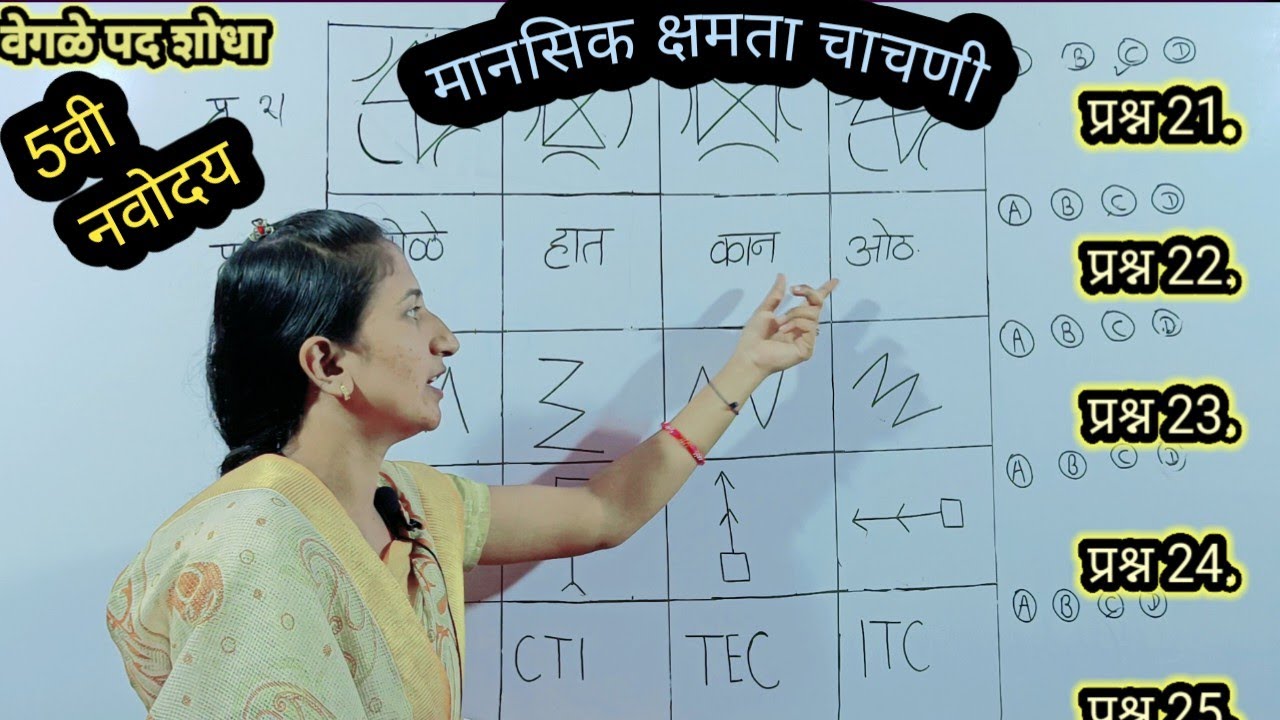 वेगळे पद शोधा
मानसिक क्षमता चाचणी
5वी
नवोदय
प्र २१
B C D
प्रश्न 21.
हात कान ओठ
A B C D
प्रश्न 22.
A B C D
प्रश्न 23.
A B C D
प्रश्न 24.
CTI TEC ITC
A B C D
प्रश्न 25.